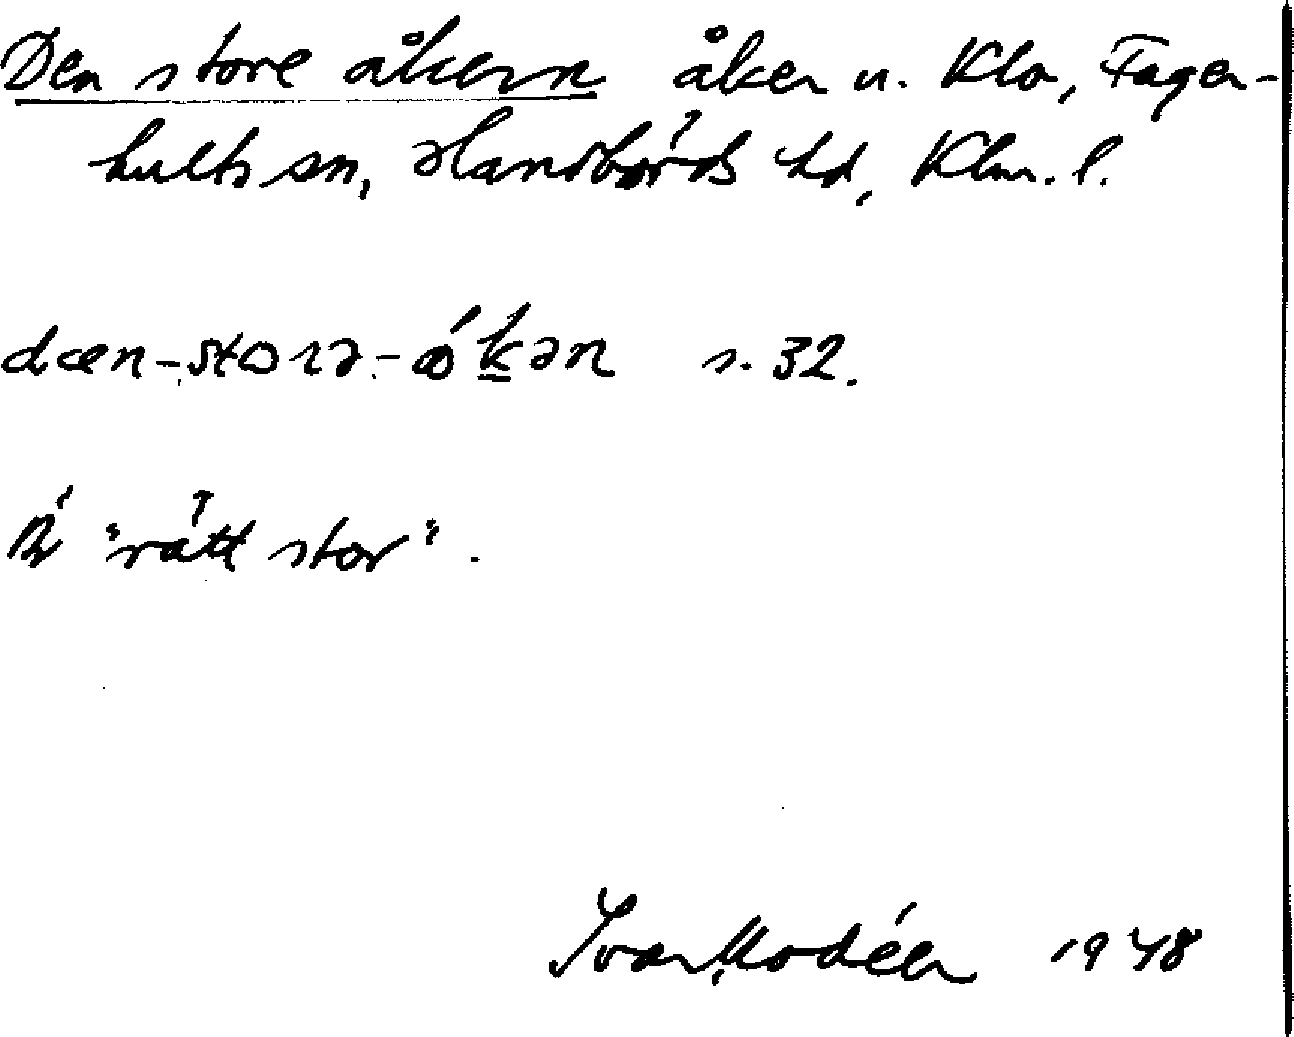 Den store åkern åker u. Klo, Fager-
hults sn, Handbörds hd, Klm. l.
dæn-storə-ǿkən s. 32.
Är "rätt stor".
Ivar Modéer 1948